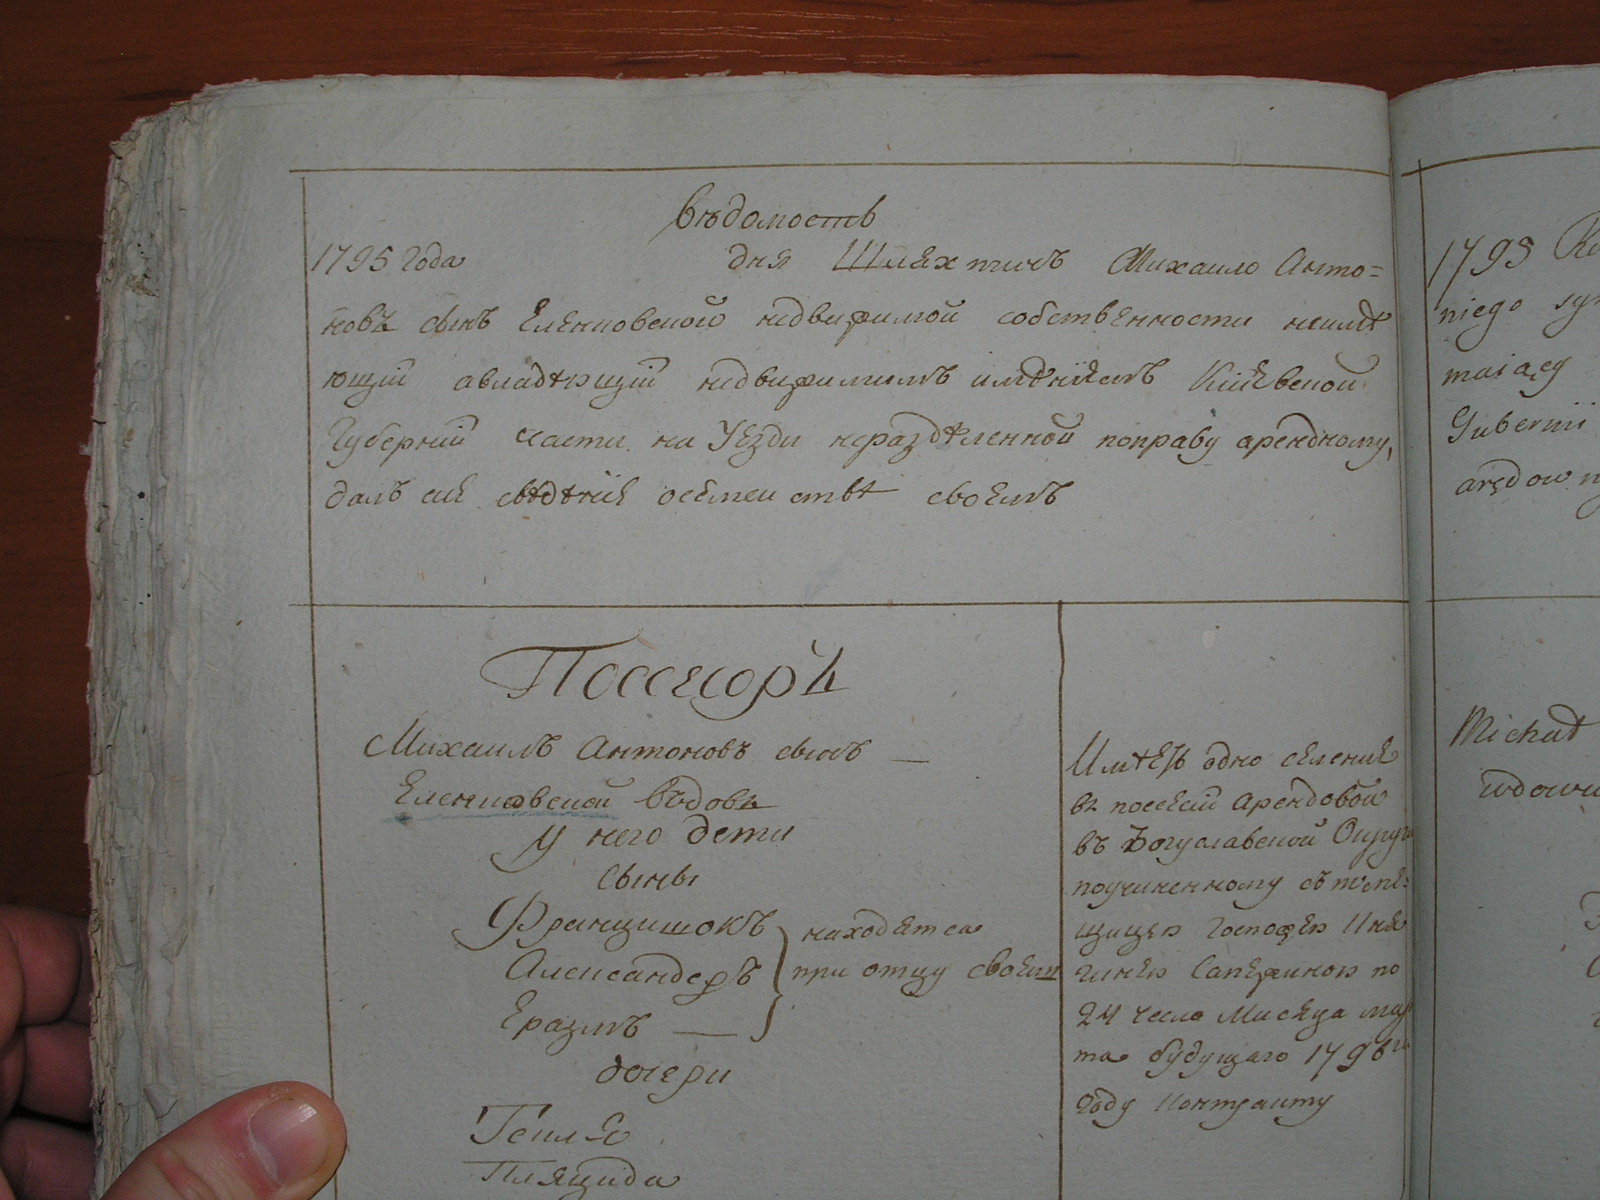 Вѣдомость
1795 года дня Шляхтичъ Михайло Анто=
новъ сынъ Еленковской недвижимой собственности неимѣ
ющій авладѣющій недвижимымъ имѣніемъ Кіевской
Губерній части на Уезди нераздѣленной поправу арендному,
далъ сие свѣдѣніе осемействѣ своемъ
Поссесоръ
Михаилъ Антоновъ сынъ —
Еленковской вдовъ
у него дети
сыны
Францишокъ находятся
Александеръ при отцу своем
Еразмъ —
дочери
Текля
Пляцида
Имѣетъ одно селение
въ посесии арендовой
въ Богуславской Округи
поучиненному съ поме=
щицею Госпожею Кня
гинею Сапежиною по
24 число Месяца мар
та будущаго 1796
году контракту
1795
niego syn
maiący
Gubernii
arędown
Michał
wdowi